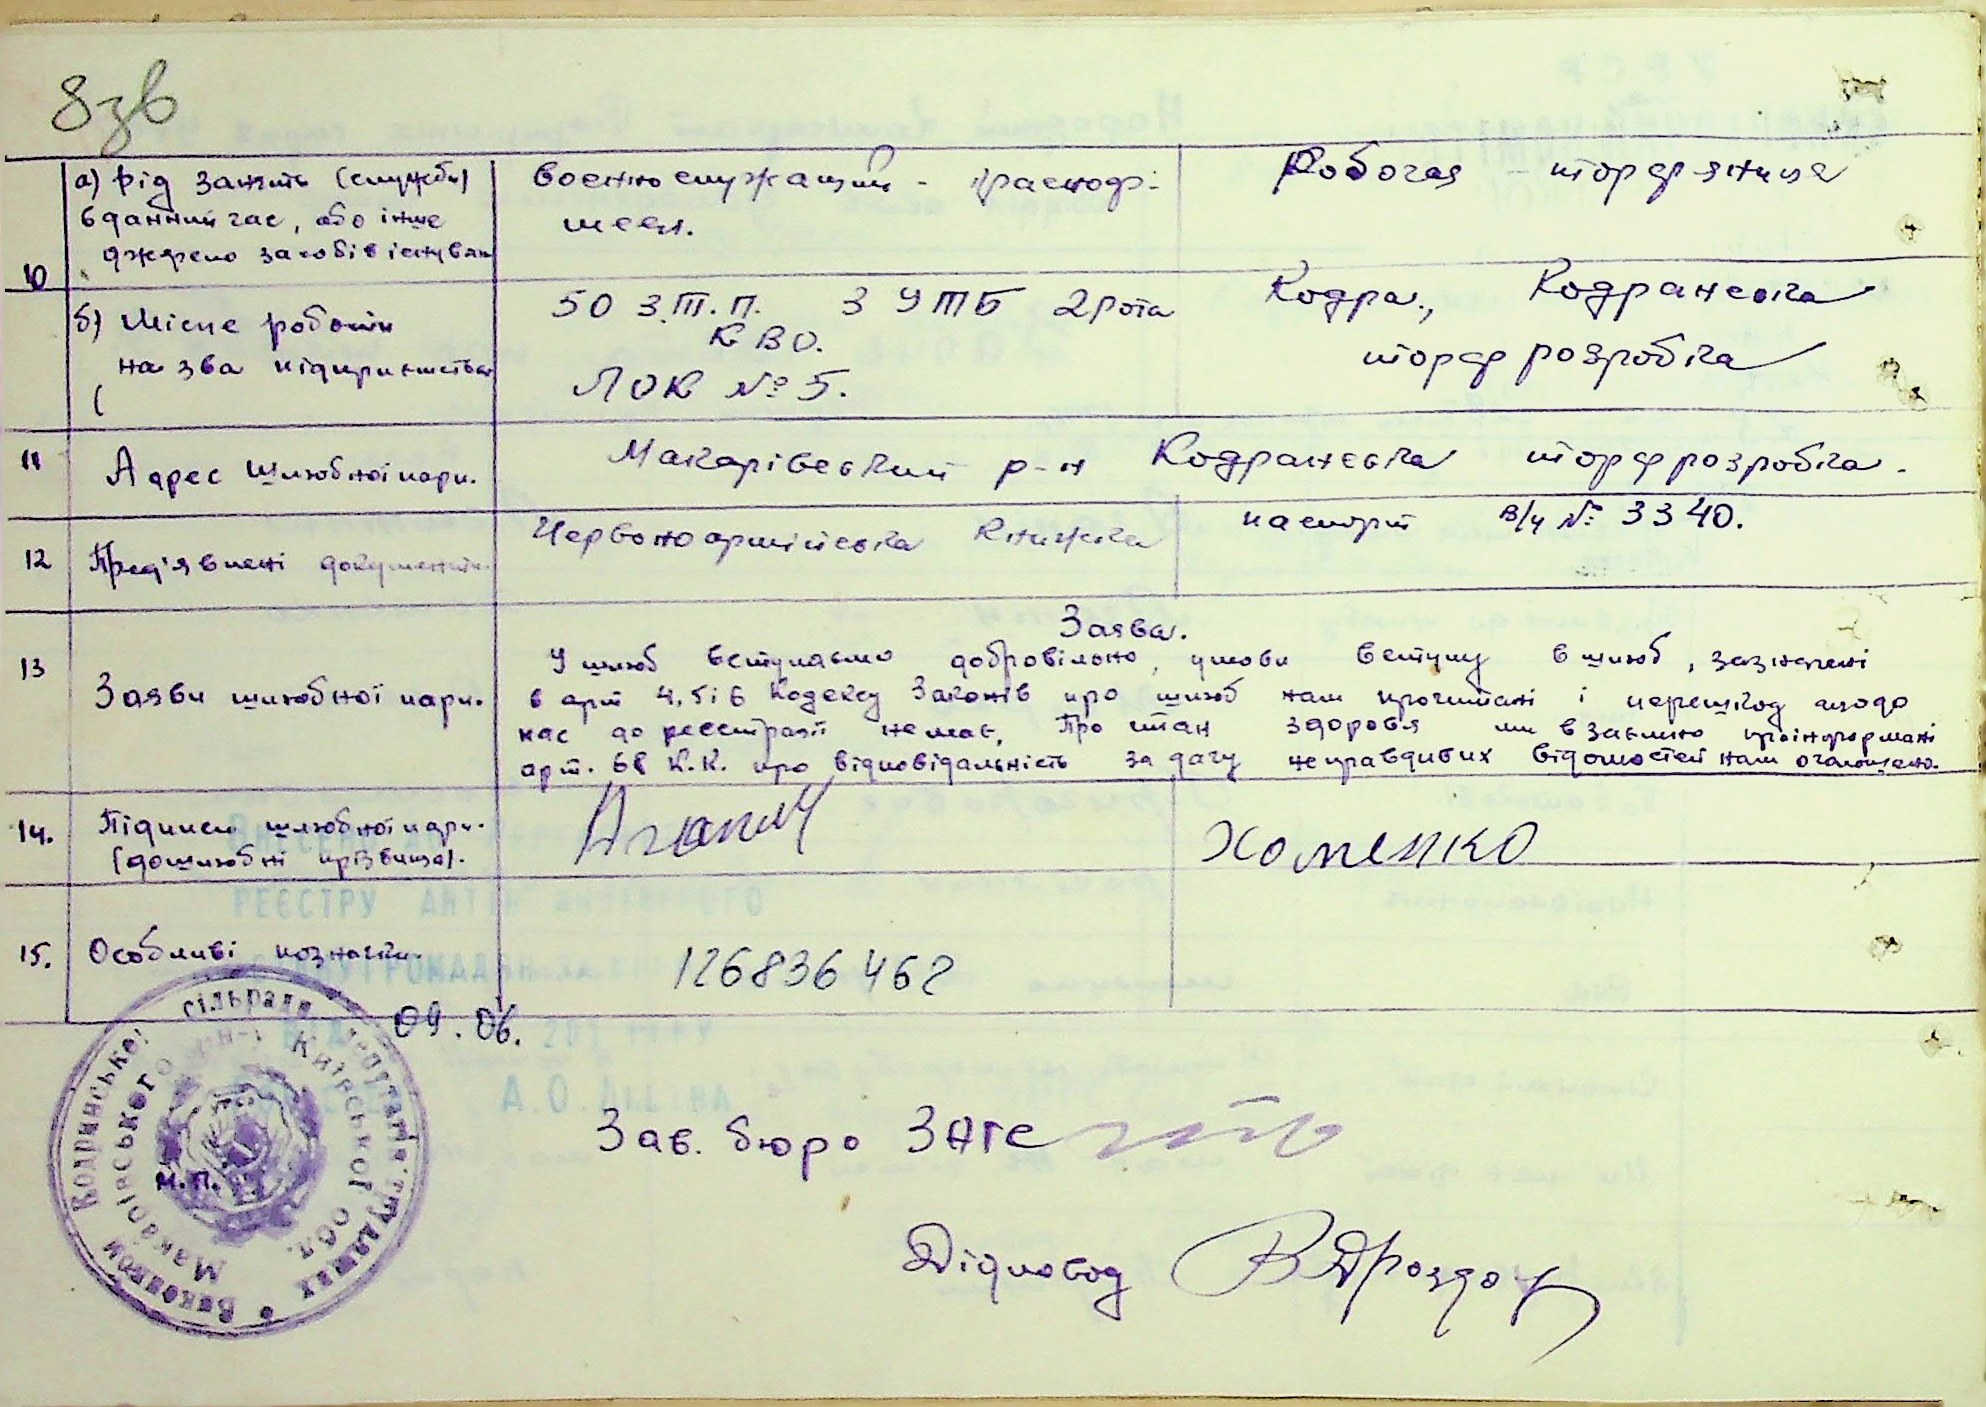 8зв
10
а) Рід занять (служби)
в данний час, або інше
джерело засобів існуван
военнослужащий - красноар-
меец.
Робочая - торфяниця
б) Місце роботи
назва підприємства
(
50 З.Т.П. 3 УТБ 2 рота
КВО.
ЛОК № 5.
Кодра, Кодранська
торфрозробка
11
Адрес шлюбної пари.
Макарівський р-н Кодранська торфрозробка.
12
Пред'явлені документи.
Червоноармійська книжка
паспорт в/ч № 3340.
13
Заяви шлюбної пари.
Заява.
У шлюб вступаємо добровільно, умови вступу в шлюб, зазначені
в арт 4, 5 і 6 Кодексу Законів про шлюб нам прочитані і перешкод щодо
нас до реєстрації немає. Про стан здоров'я ми взаємно проінформані
арт. 68 К.К. про відповідальність за дачу неправдивих відомостей нам оголошено.
14.
Підписи шлюбної пари.
(дошлюбні прізвища).
Хоменко
15.
Особливі позначки.
126836462
09.06.
Виконком Кодринської сільради депутатів трудящих
Макарівського р-н Київської обл.
м.п.
Зав. бюро ЗАГС
Діловод